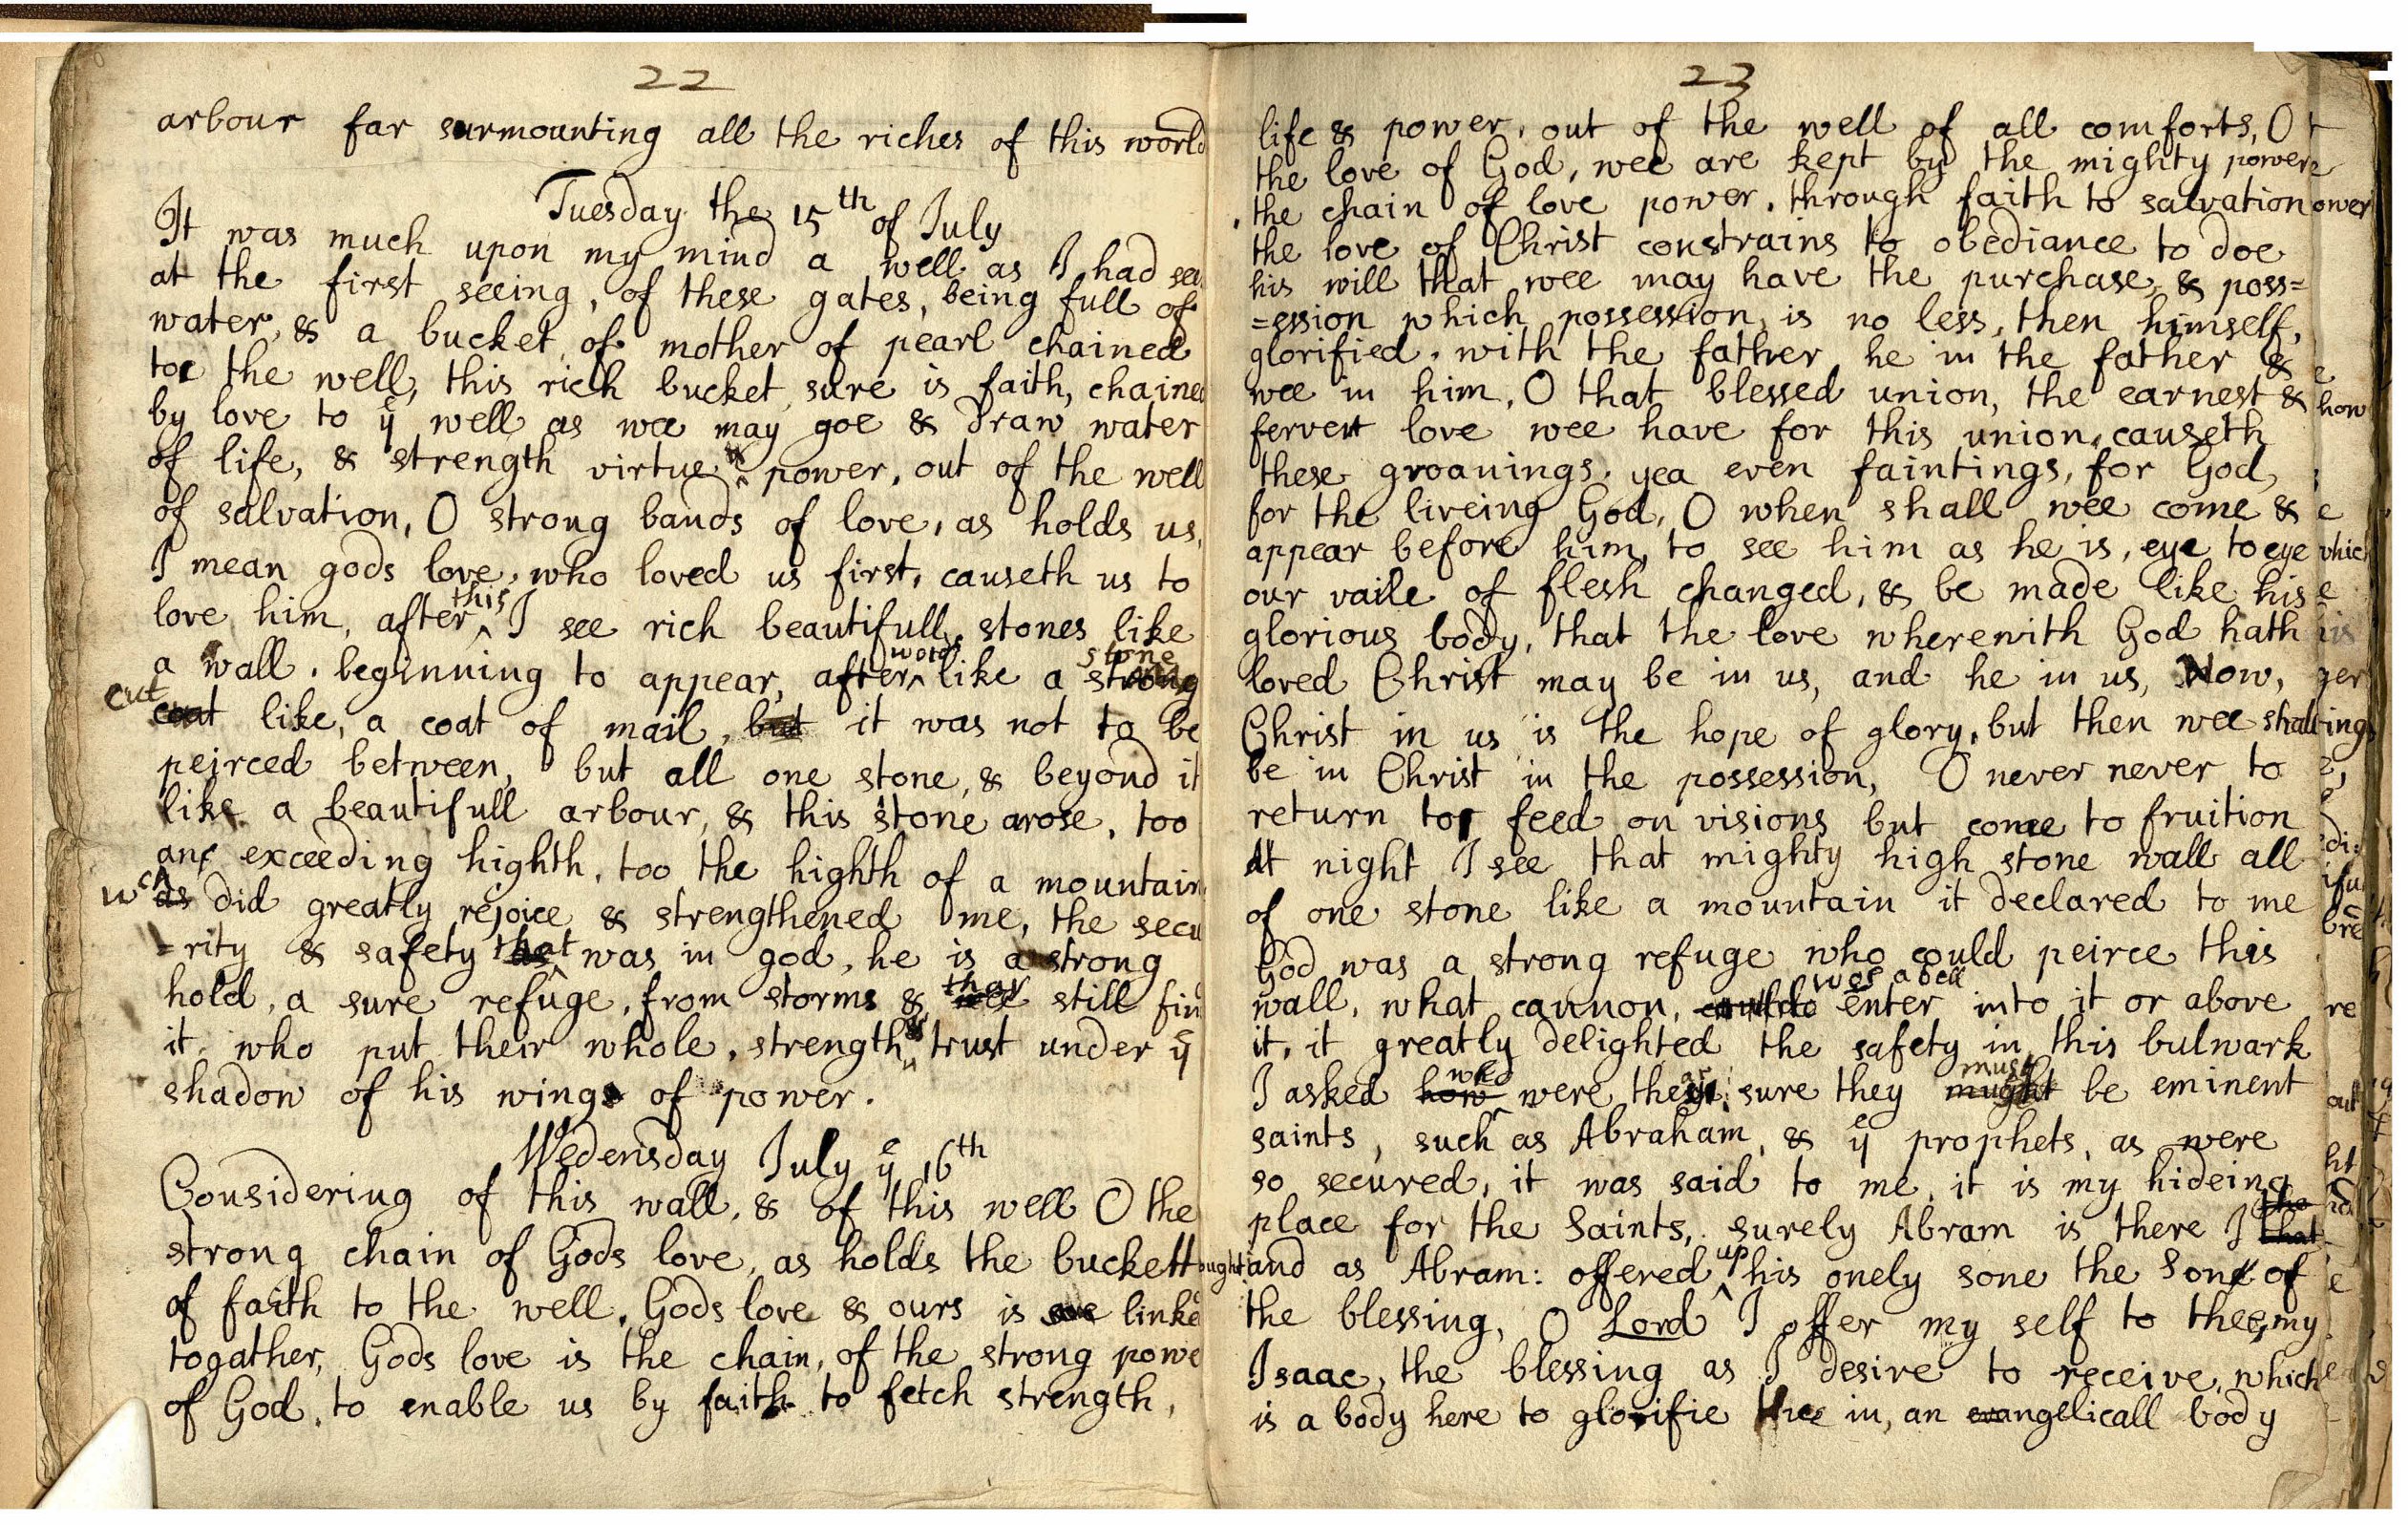 22
arbour far surmounting all the riches of this world
Tuesday the 15th of July
It was much upon my mind a well as I had see
at the first seeing, of these gates, being full of
water, & a bucket of mother of pearl chained
toe the well, this rich bucket sure is faith, chained
by love to ye well as wee may goe & draw water
of life, & strength virtue & power, out of the well
of salvation, O strong bands of love, as holds us,
I mean gods love, who loved us first, causeth us to
love him, after this I see rich beautifull stones like
a wall, beginning to appear, after word like a stone strong
cut coat like, a coat of mail, but it was not to be
peirced between, but all one stone, & beyond it
like a beautifull arbour, & this stone arose, too
an exceeding highth, too the highth of a mountain
wch as did greatly rejoice & strengthened me, the secu
=rity & safety that was in god, he is a strong
hold, a sure refuge, from storms & thay still fin
it who put their whole, strength & trust under ye
shadow of his wings of power.
Wedensday July ye 16th
Considering of this wall, & of this well O the
strong chain of Gods love, as holds the buckett
of faith to the well, Gods love & ours is linked
togather, Gods love is the chain, of the strong powe
of God, to enable us by faith to fetch strength,
23
life & power, out of the well of all comforts, O
the love of God, wee are kept by the mighty power
the chain of love power, through faith to salvation
the love of Christ constrains to obediance to doe
his will that wee may have the purchase, & poss=
=ession which possession, is no less, then himself,
glorified, with the father he in the father &
wee in him, O that blessed union, the earnest &
fervent love wee have for this union, causeth
these groanings, yea even faintings, for God,
for the liveing God, O when shall wee come &
appear before him, to see him as he is, eye to eye
our vaile of flesh changed, & be made like his
glorious body, that the love wherewith God hath
loved Christ may be in us, and he in us, Now,
Christ in us is the hope of glory, but then wee shall
be in Christ in the possession, O never never to
return to feed on visions but come to fruition
At night I see that mighty high stone wall all
of one stone like a mountain it declared to me
God was a strong refuge who could peirce this
wall, what cannon, could was abell enter into it or above
it, it greatly delighted the safety in this bulwark
I asked how who were thear, sure they mught must be eminent
saints, such as Abraham, & ye prophets, as were
so secured, it was said to me, it is my hideing
place for the Saints, surely Abram is there I that
and as Abram: offered up his onely sone the Son of
the blessing, O Lord I offer my self to thee, my
Isaac, the blessing as I desire to receive, which
is a body here to glorifie thee in, an evangelicall body